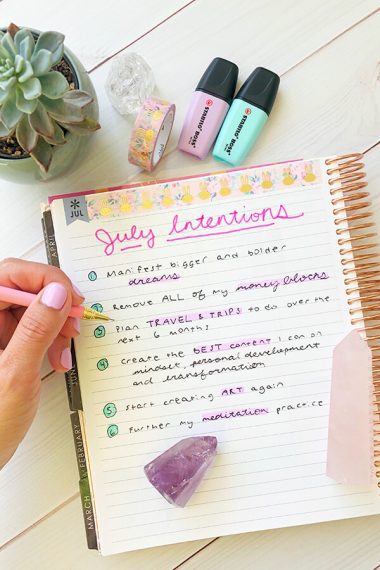 STABILO BOSS
STABILO BOSS
* JUL
July Intentions
APRIL
1 Manifest bigger and bolder
dreams
2 Remove ALL of my money blocks
3 Plan TRAVEL & TRIPS to do over the
next 6 months
4 Create the BEST content I can on
mindset, personal development
and transformation
5 Start creating ART again
6 Further my meditation practice
FEBRUARY
MARCH